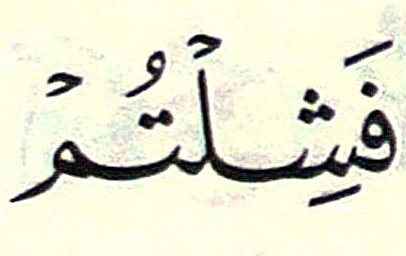 فَشِلْتُمْ